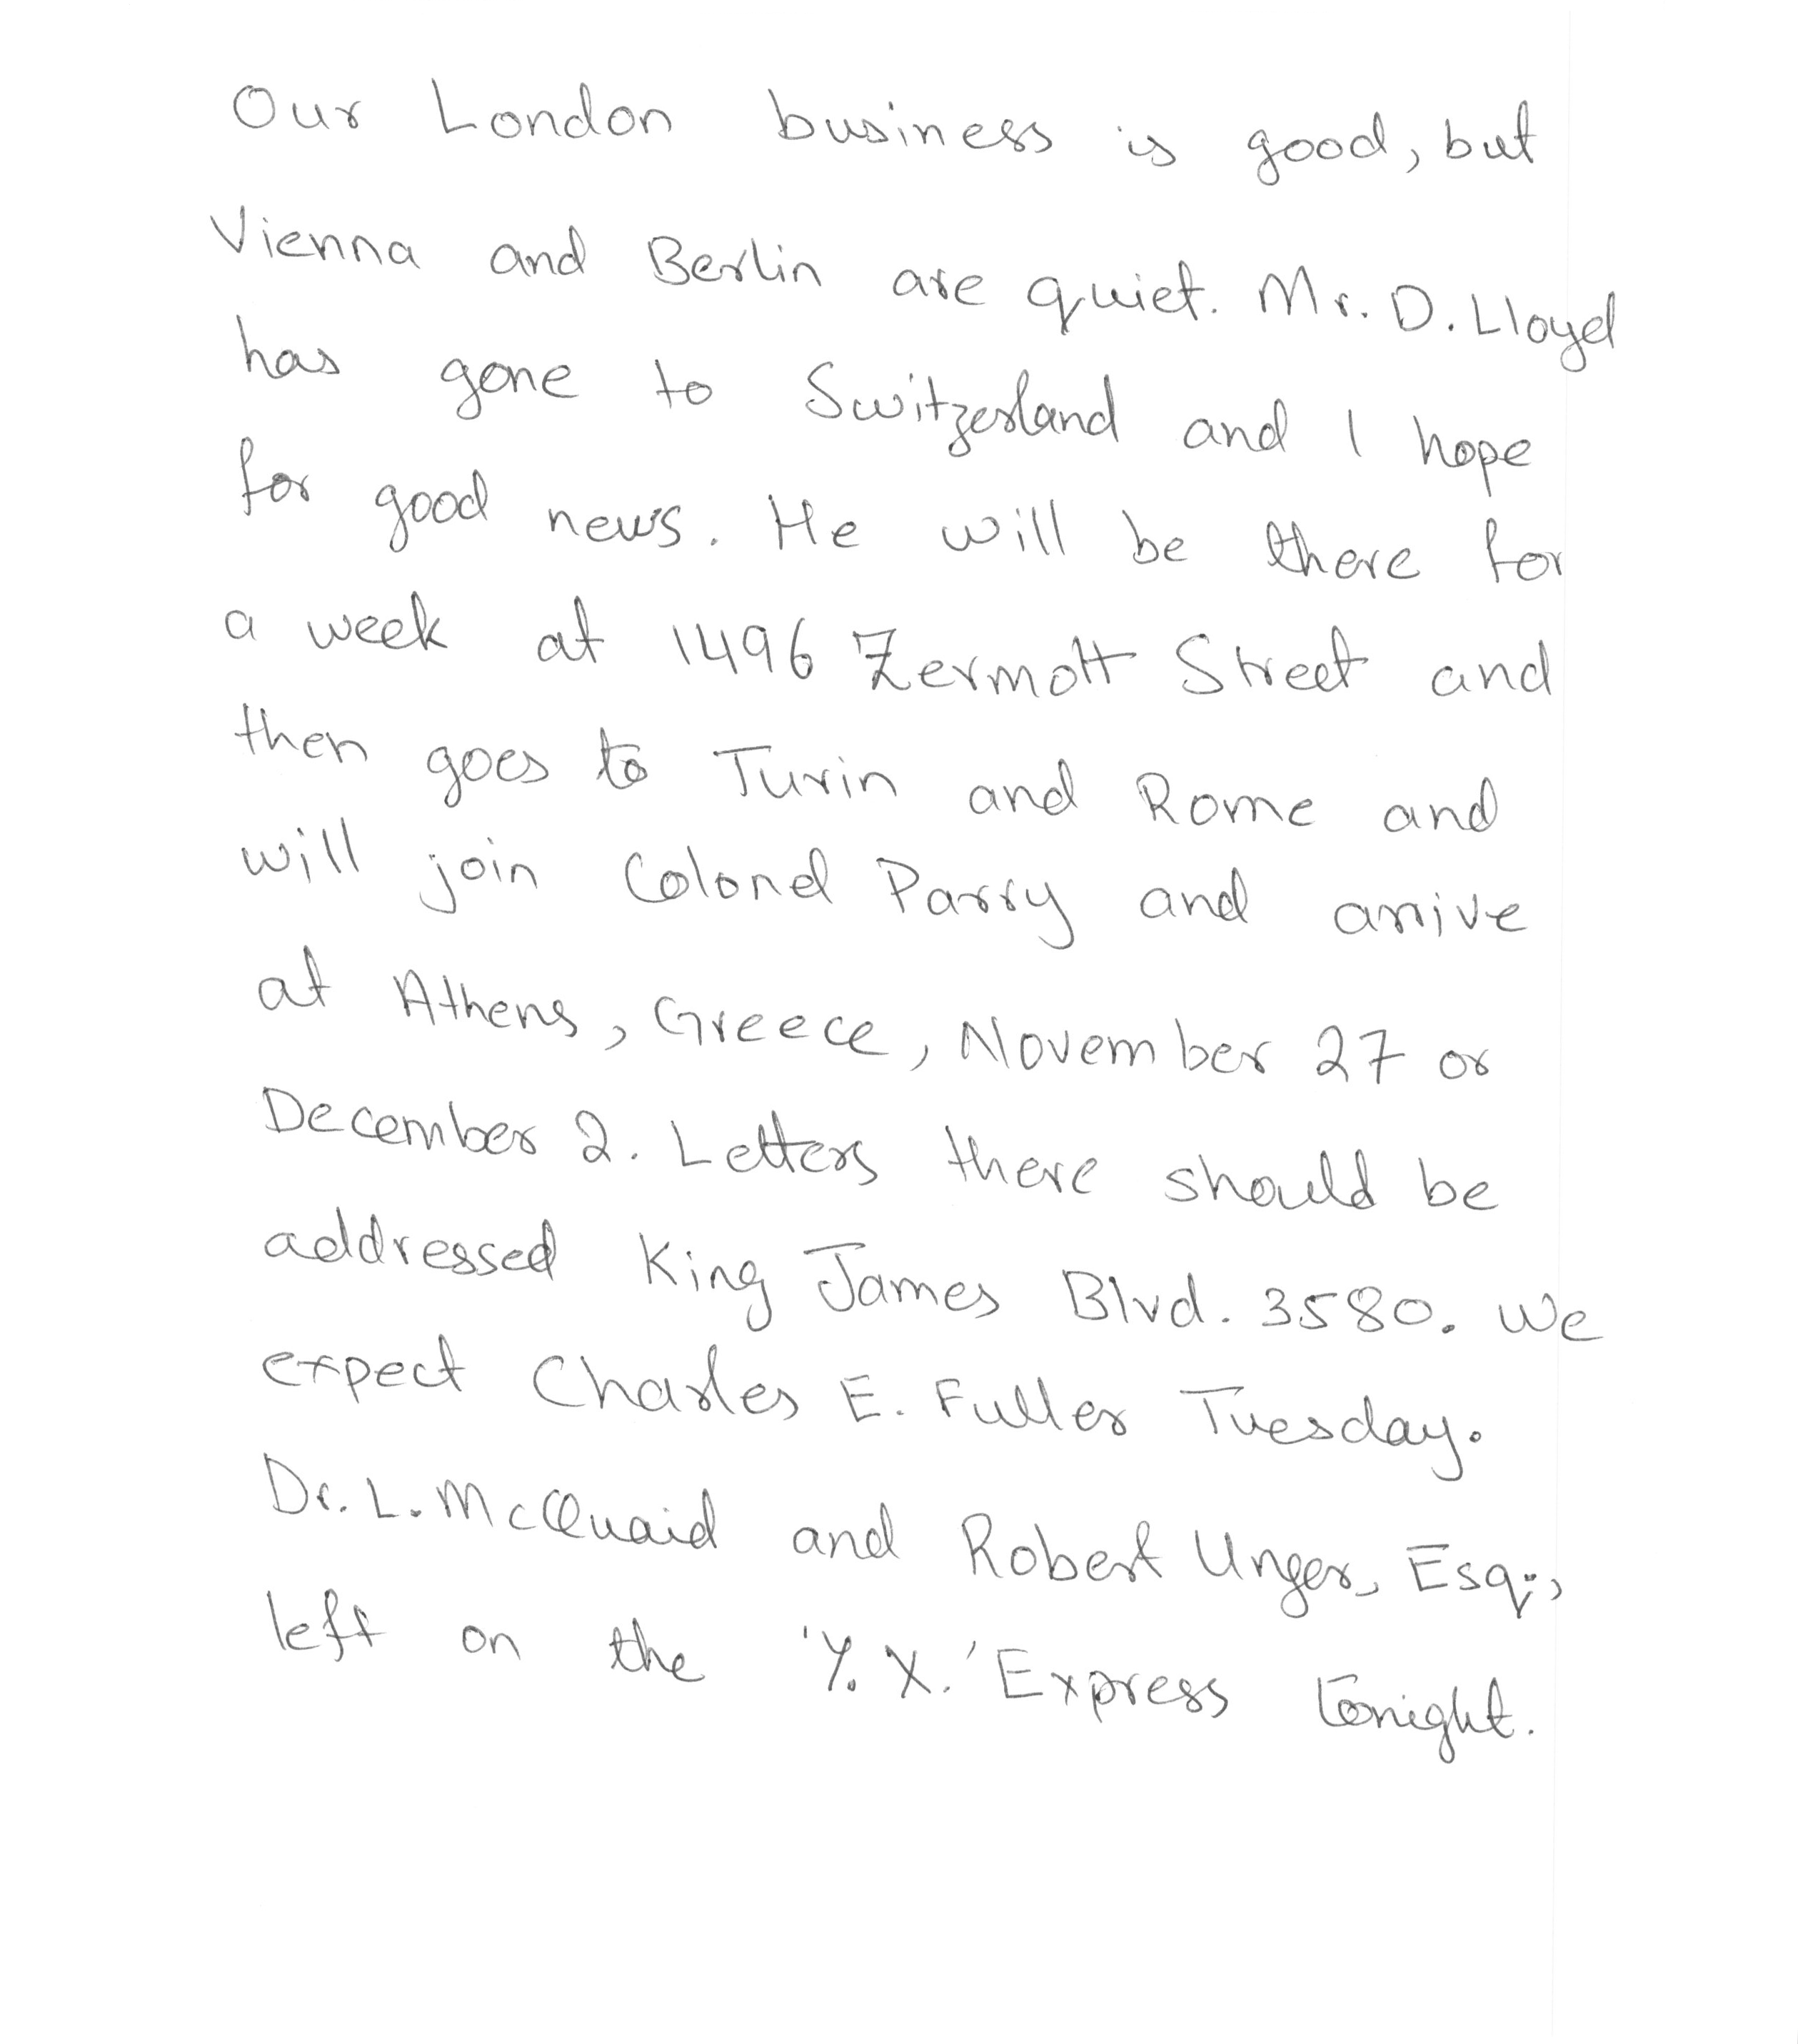 Our London business is good, but
Vienna and Berlin are quiet. Mr. D. Lloyd
has gone to Switzerland and I hope
for good news. He will be there for
a week at 1496 Zermott Street and
then goes to Turin and Rome and
will join Colonel Parry and arrive
at Athens, Greece, November 27 or
December 2. Letters there should be
addressed King James Blvd. 3580. We
expect Charles E. Fuller Tuesday.
Dr. L. McQuaid and Robert Unger, Esq.,
left on the 'Y. X.' Express tonight.